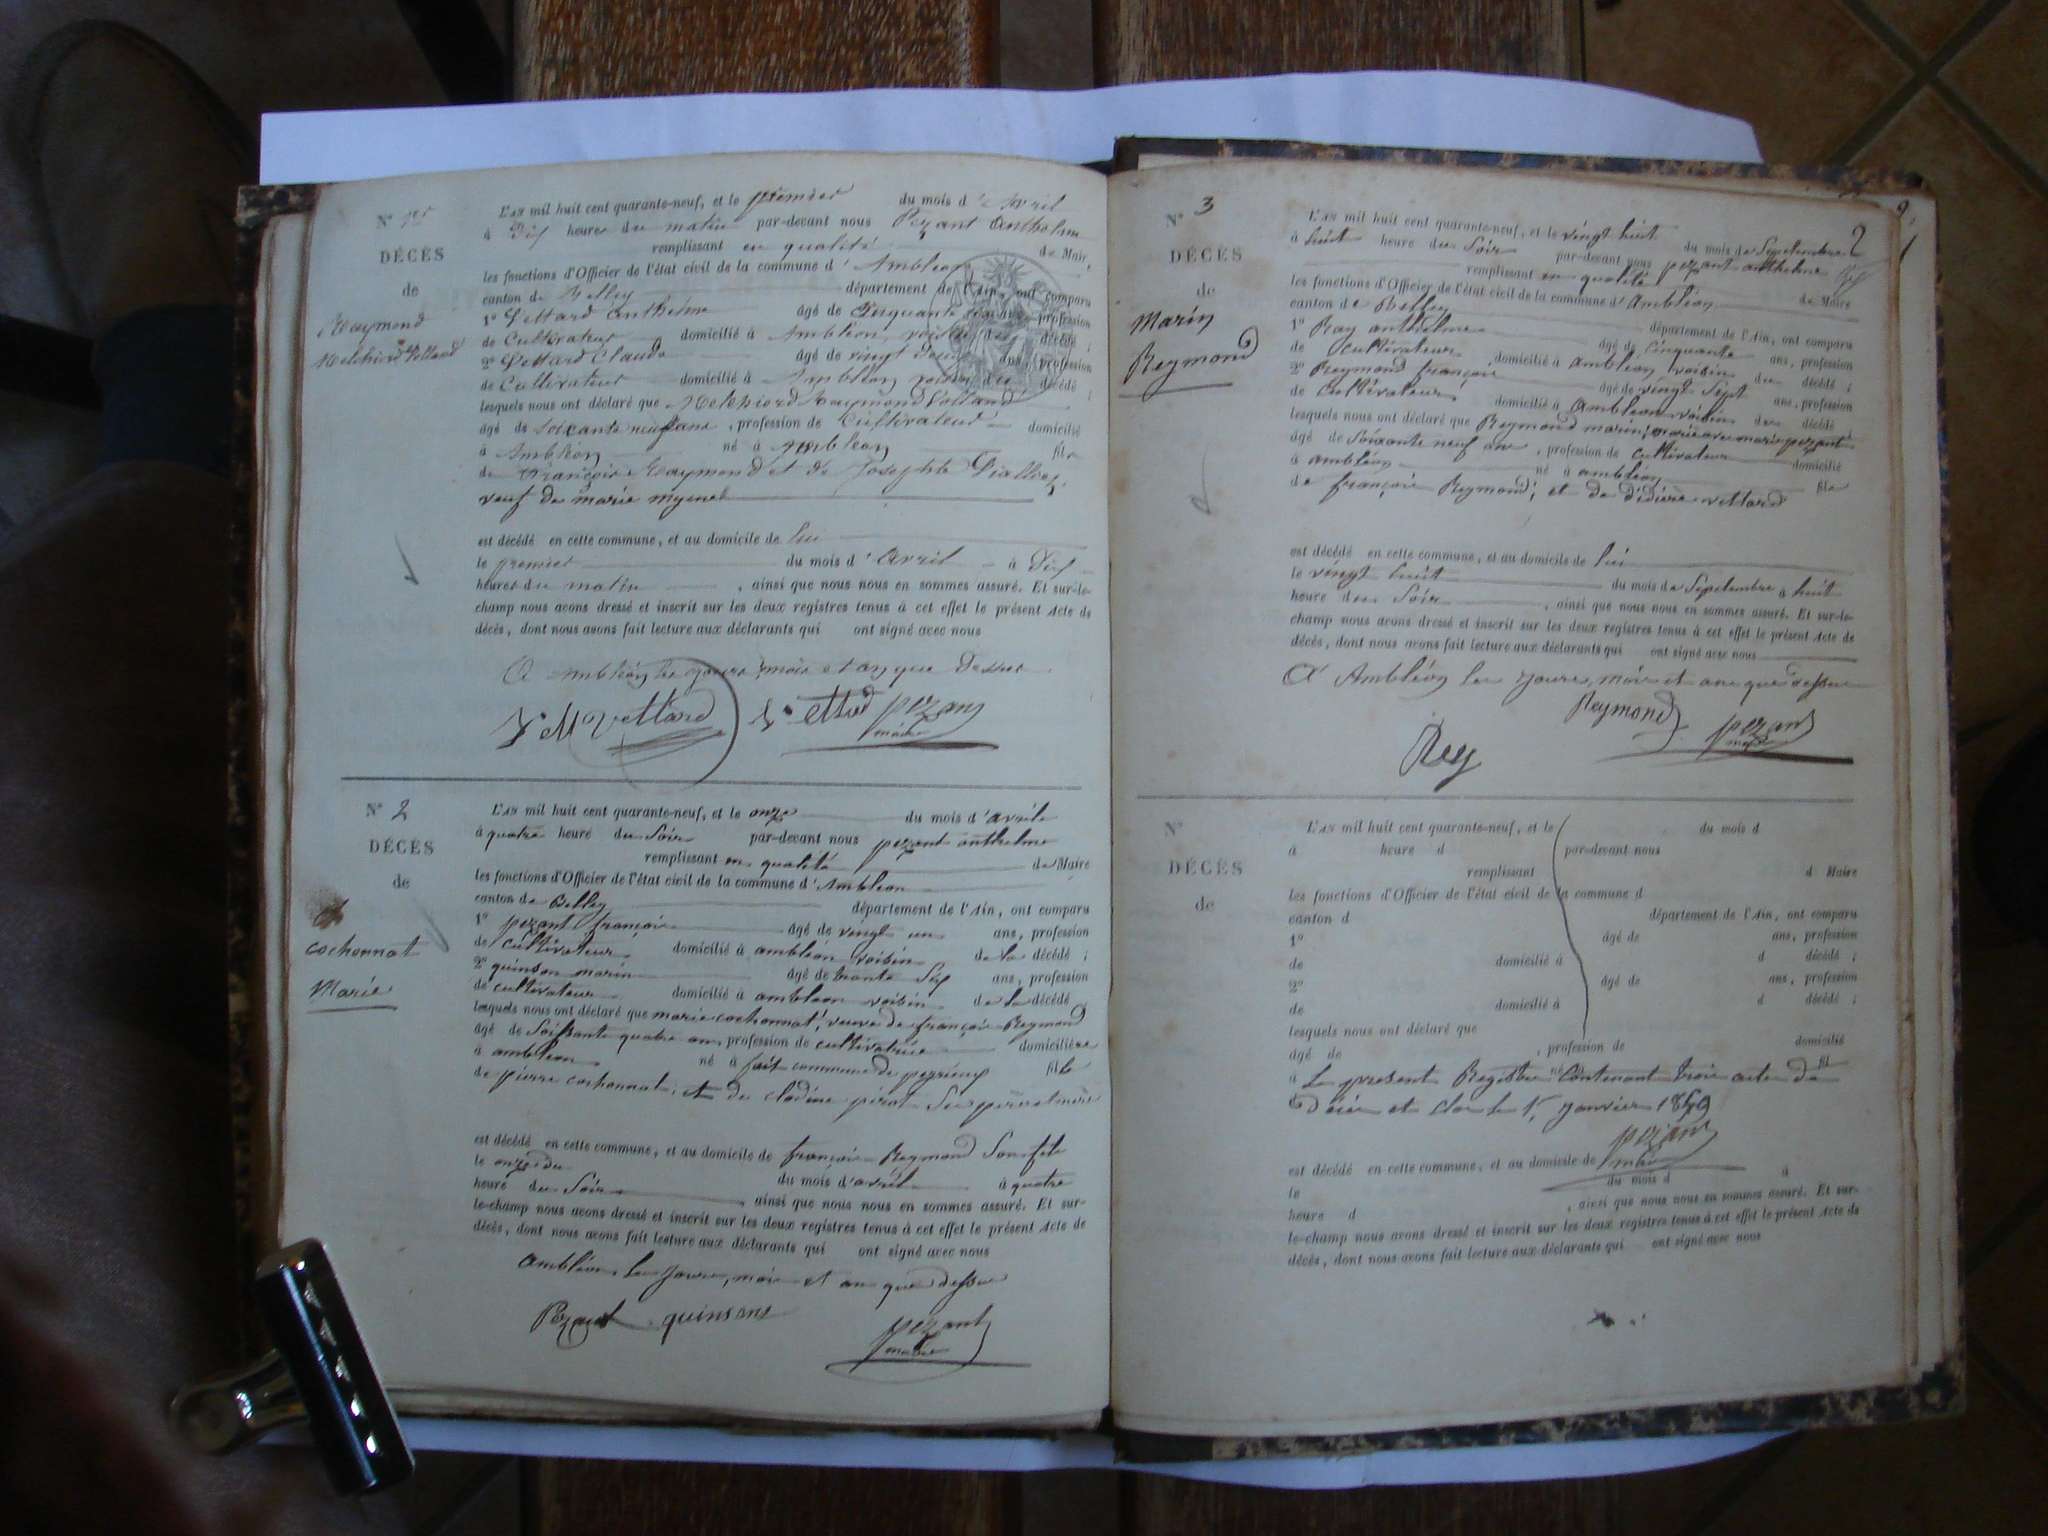 N° 1er
DÉCÈS
de
Raymond
Melchiord Volland
L'AN mil huit cent quarante-neuf, et le premier du mois d'Avril
à Dix heures du matin par-devant nous Pezant Anthelme
remplissant en qualité de Maire
les fonctions d'Officier de l'état civil de la commune d'Ambléon
canton de Belley département de l'Ain, ont comparu
1° Vettard Anthelme âgé de Cinquante ans, profession
de Cultivateur domicilié à Ambléon, voisin du décédé ;
2° Vettard Claude âgé de vingt ans, profession
de Cultivateur domicilié à Ambléon voisin du décédé ;
lesquels nous ont déclaré que Melchiord Raymond Volland
âgé de soixante neuf ans, profession de Cultivateur domicilié
à Ambléon né à Ambléon fils
de François Raymond et de Josephte
veuf de marie mynet
est décédé en cette commune, et au domicile de lui
le premier du mois d'Avril à Dix
heures du matin, ainsi que nous nous en sommes assuré. Et sur-le-
champ nous avons dressé et inscrit sur les deux registres tenus à cet effet le présent Acte de
décès, dont nous avons fait lecture aux déclarants qui ont signé avec nous
A Ambléon les jours, mois et an que dessus
Vettard pezant
maire
N° 2
DÉCÈS
de
cochonnat
Marie
L'AN mil huit cent quarante-neuf, et le onze du mois d'avril
à quatre heure du Soir par-devant nous pezant anthelme
remplissant en qualité de Maire
les fonctions d'Officier de l'état civil de la commune d'Ambléon
canton de Belley département de l'Ain, ont comparu
1° pezant françois âgé de vingt un ans, profession
de cultivateur domicilié à ambléon voisin de la décédé ;
2° quinson marin âgé de trante Six ans, profession
de cultivateur domicilié à ambléon voisin de la décédé
lesquels nous ont déclaré que marie cochonnat, veuve de françois Reymond
âgé de Soissante quatre ans, profession de cultivatrice domicilière
à ambléon né à fait commune de peyrieux fille
de pierre cochonnat, et de clodine pirat Ses père et mère
est décédé en cette commune, et au domicile de françois Reymond Son fils
le onze du du mois d'avril à quatre
heure du Soir, ainsi que nous nous en sommes assuré. Et sur-
le-champ nous avons dressé et inscrit sur les deux registres tenus à cet effet le présent Acte de
décès, dont nous avons fait lecture aux déclarants qui ont signé avec nous
Ambléon les jours, mois et an que dessus
Pezant quinsons pezant
maire
2
N° 3
DÉCÈS
de
Marin
Reymond
L'AN mil huit cent quarante-neuf, et le vingt huit du mois de Septembre
à huit heure du Soir par-devant nous pezant anthelme
remplissant en qualité de Maire
les fonctions d'Officier de l'état civil de la commune d'Ambléon
canton de Belley département de l'Ain, ont comparu
1° Rey anthelme âgé de cinquante ans, profession
de cultivateur domicilié à ambléon voisin du décédé ;
2° Reymond françois âgé de vingt Sept ans, profession
de Cultivateur domicilié à Ambléon voisin du décédé
lesquels nous ont déclaré que Reymond marin, marié avec marie pezant
âgé de Soixante neuf ans, profession de cultivateur domicilié
à ambléon né à ambléon fils
de françois Reymond, et de didière vettard
est décédé en cette commune, et au domicile de lui
le vingt huit du mois de Septembre à huit
heure du Soir, ainsi que nous nous en sommes assuré. Et sur-le-
champ nous avons dressé et inscrit sur les deux registres tenus à cet effet le présent Acte de
décès, dont nous avons fait lecture aux déclarants qui ont signé avec nous
A Ambléon les jours, mois et an que dessus
Reymond pezant
maire
Rey
N°
DÉCÈS
de
L'AN mil huit cent quarante-neuf, et le du mois d
à heure d par-devant nous
remplissant d Maire
les fonctions d'Officier de l'état civil de la commune d
canton d département de l'Ain, ont comparu
1° âgé de ans, profession
de domicilié à d décédé ;
2° âgé de ans, profession
de domicilié à d décédé ;
lesquels nous ont déclaré que
âgé de , profession de domicilié
à né fil
Le present Registre Contenant trois acte de
Décès et clos le 1er janvier 1850
pezant
maire
est décédé en cette commune, et au domicile de
le du mois d à
heure d , ainsi que nous nous en sommes assuré. Et sur-
le-champ nous avons dressé et inscrit sur les deux registres tenus à cet effet le présent Acte de
décès, dont nous avons fait lecture aux déclarants qui ont signé avec nous